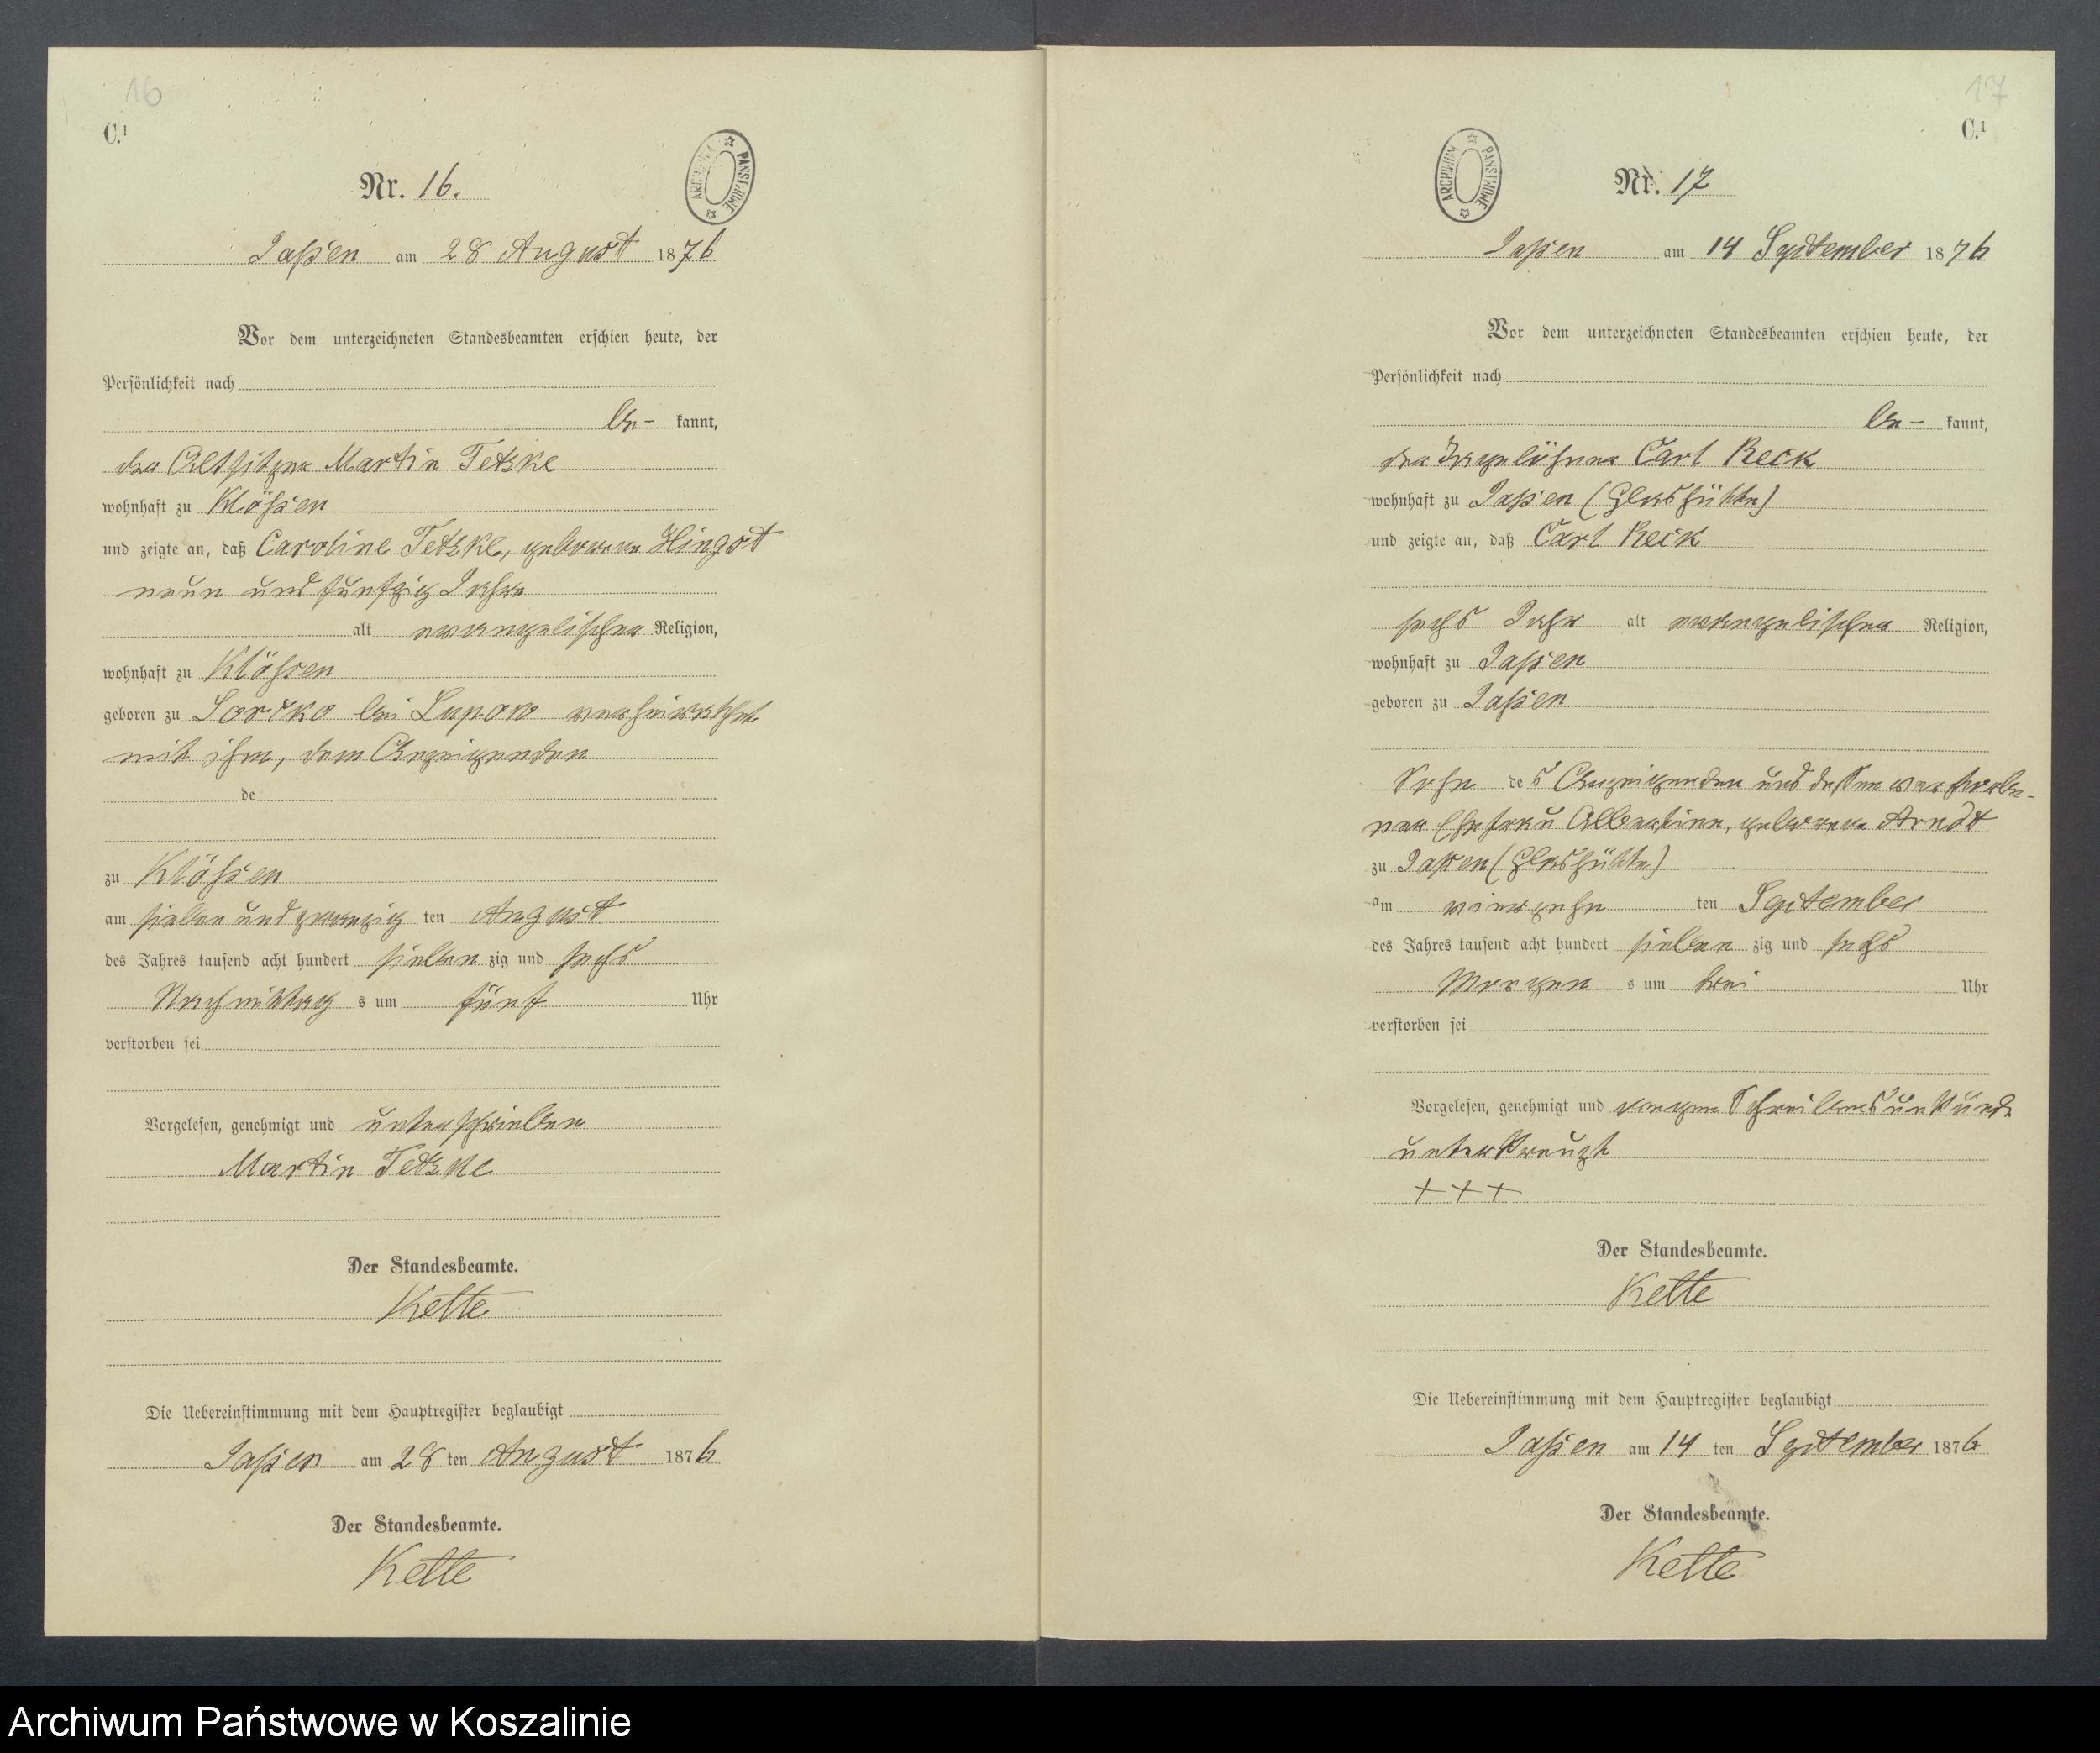 16
C.¹
ARCHIWUM PAŃSTWOWE
Nr. 16.
Jassen am 28 August 1876
Vor dem unterzeichneten Standesbeamten erschien heute, der
Persönlichkeit nach
be- kannt,
der Altsitzer Martin Tetzke
wohnhaft zu Klössen
und zeigte an, daß Caroline Tetzke, geborene Hingst
neun und fünfzig Jahre
alt evangelischer Religion,
wohnhaft zu Klössen
geboren zu bei Lupow verheirathet
mit ihm, dem Anzeigenden
de
zu Klössen
am sieben und zwanzig ten August
des Jahres tausend acht hundert sieben zig und sechs
Nachmittag s um fünf Uhr
verstorben sei
Vorgelesen, genehmigt und unterschrieben
Martin Tetzke
Der Standesbeamte.
Kette
Die Uebereinstimmung mit dem Hauptregister beglaubigt
Jassen am 28 ten August 1876
Der Standesbeamte.
Kette
17
C.¹
ARCHIWUM PAŃSTWOWE
Nr. 17
Jassen am 14 September 1876
Vor dem unterzeichneten Standesbeamten erschien heute, der
Persönlichkeit nach
be- kannt,
der Tagelöhner Carl Reck
wohnhaft zu Jassen (Glashütte)
und zeigte an, daß Carl Reck
sechs Jahr alt evangelischer Religion,
wohnhaft zu Jassen
geboren zu Jassen
Sohn des Anzeigenden und dessen verstorbe-
ner Ehefrau Albertine, geborene Arndt
zu Jassen (Glashütte)
am vierzehn ten September
des Jahres tausend acht hundert sieben zig und sechs
Morgen s um drei Uhr
verstorben sei
Vorgelesen, genehmigt und wegen Schreibensunkunde
unterkreuzt
+++
Der Standesbeamte.
Kette
Die Uebereinstimmung mit dem Hauptregister beglaubigt
Jassen am 14 ten September 1876
Der Standesbeamte.
Kette
Archiwum Państwowe w Koszalinie